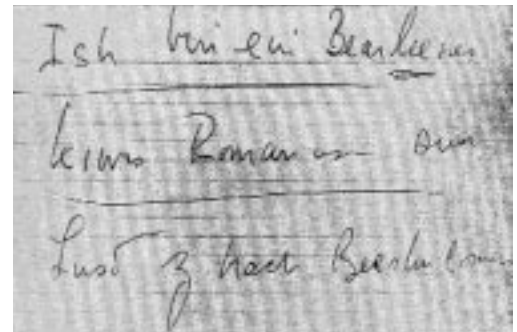 Ish bin ein Bearleener
kiwis Romanus sum
Lust z nach Bearlin comen